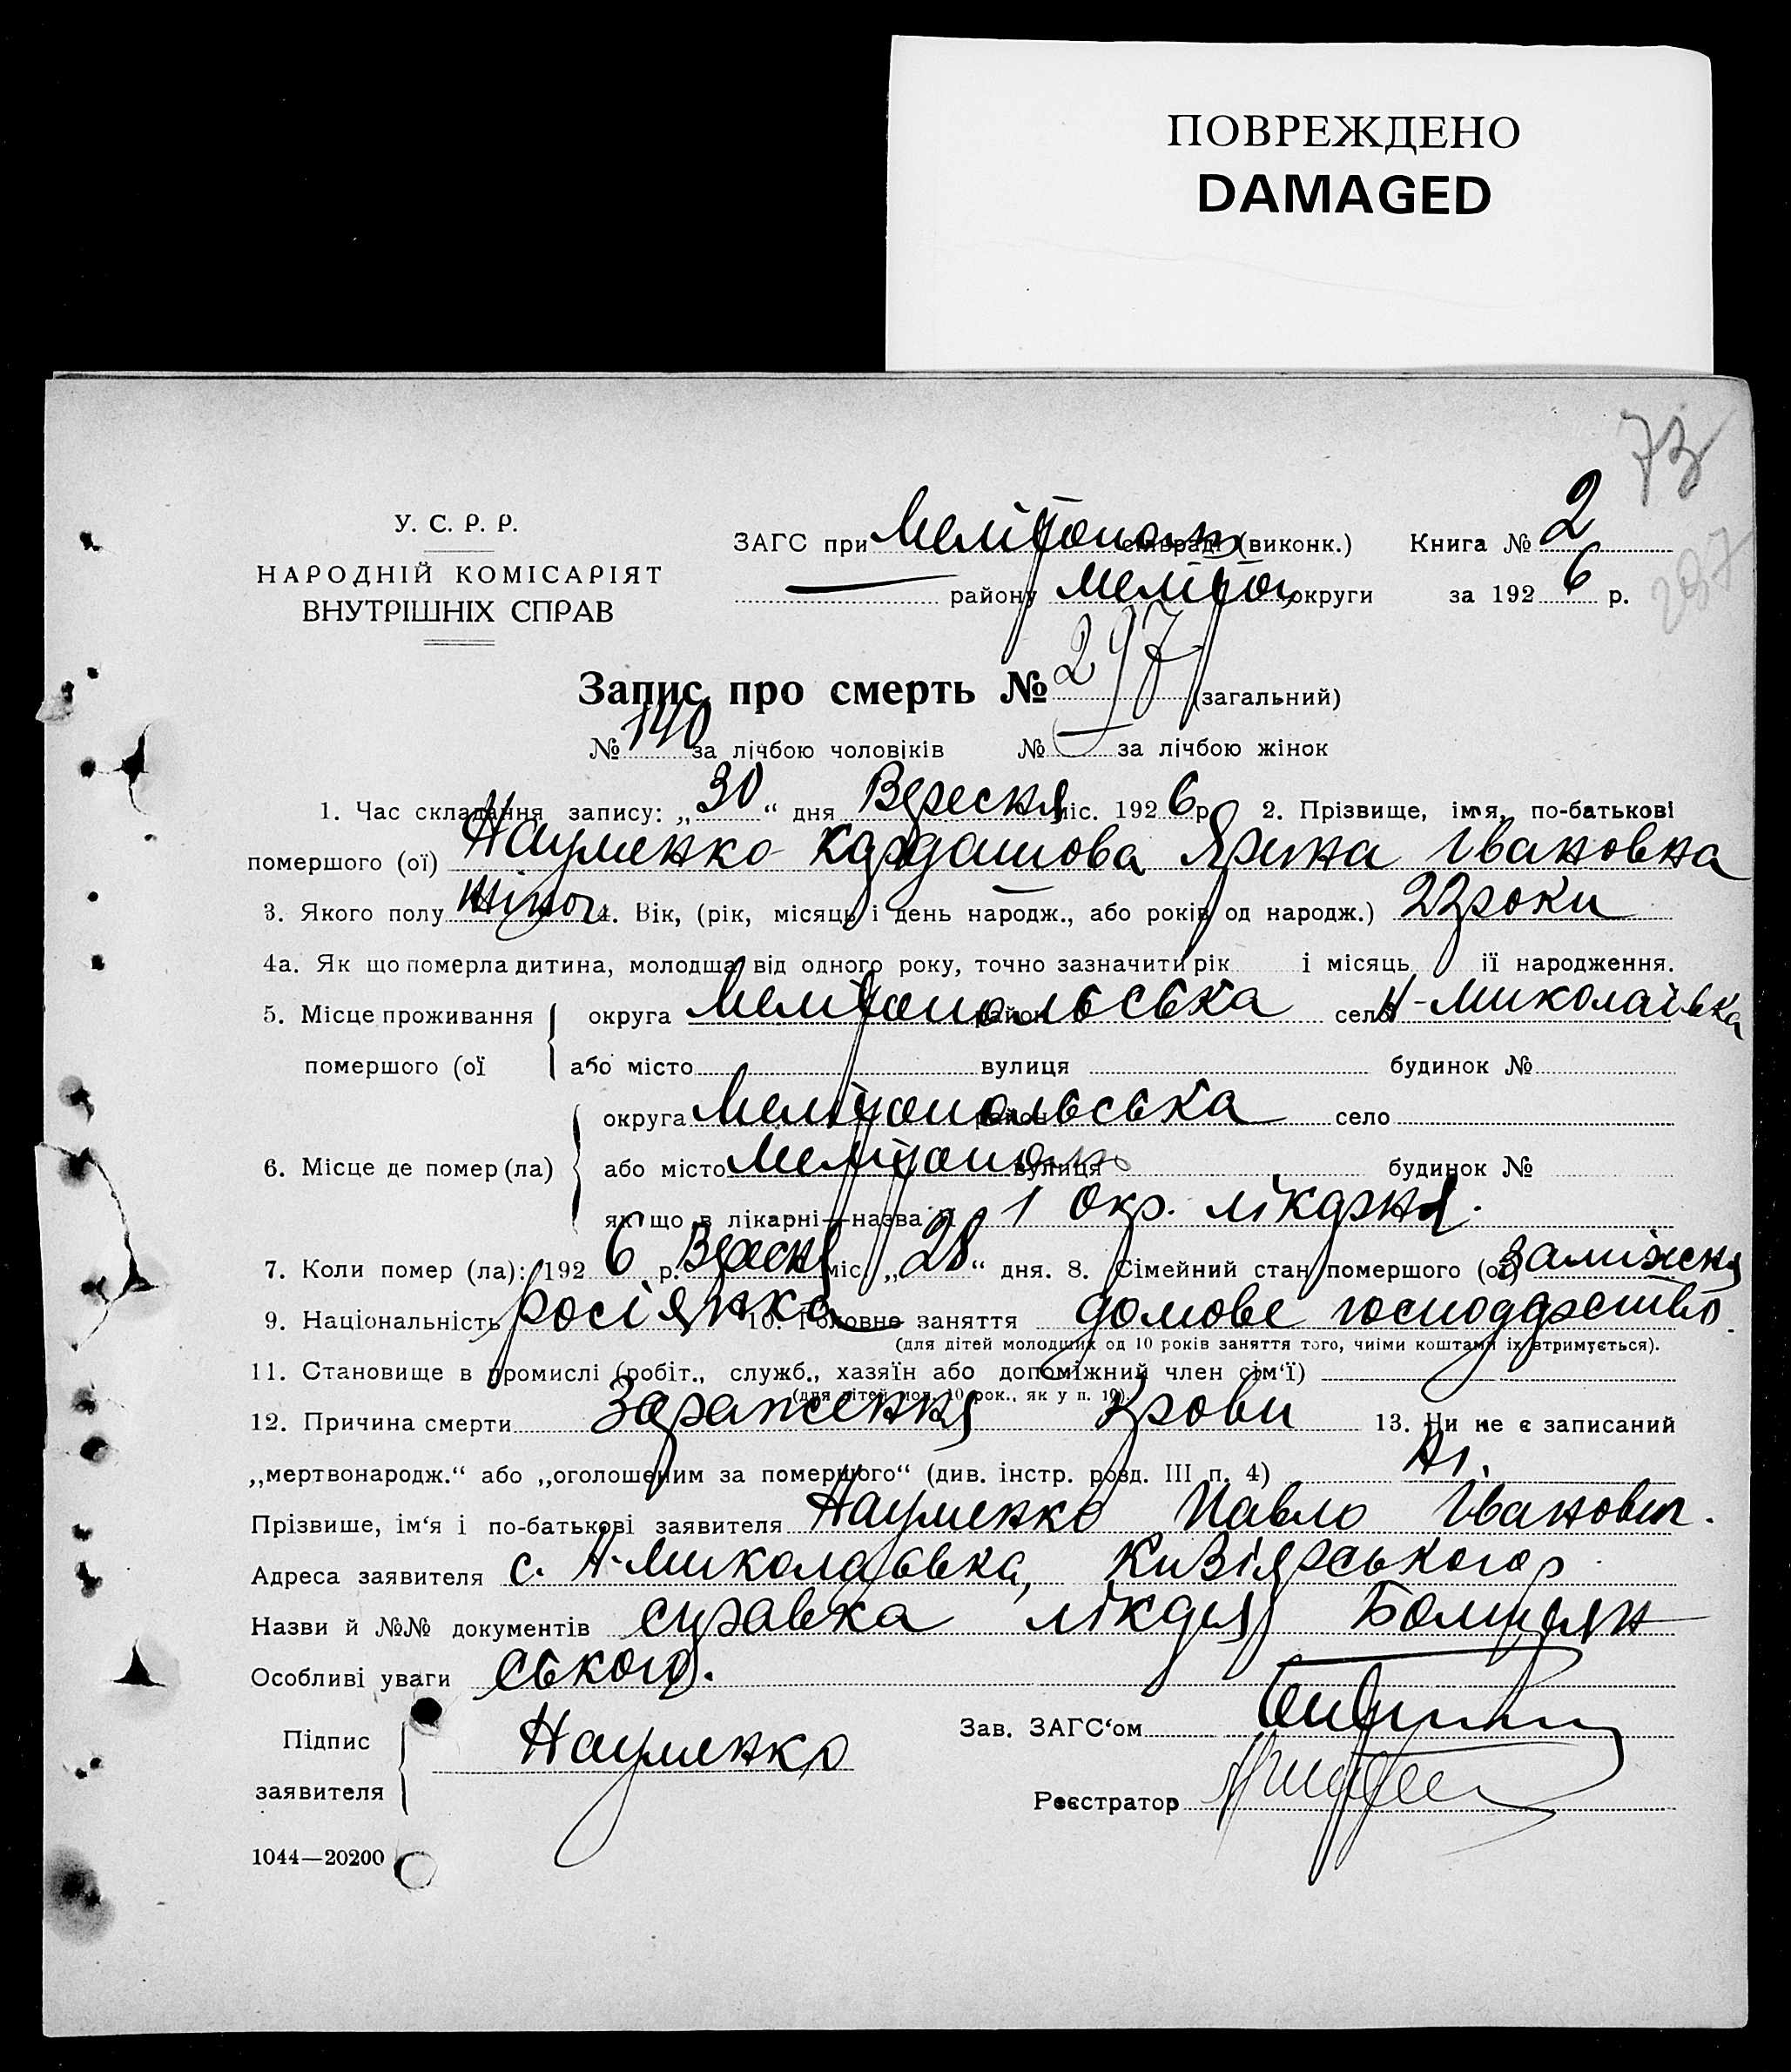 ПОВРЕЖДЕНО
DAMAGED
73
У. С. Р. Р.
НАРОДНІЙ КОМІСАРІЯТ
ВНУТРІШНІХ СПРАВ
ЗАГС при Мелітополь сільраді (виконк.) Книга № 2
району Меліто округи за 1926 р.
297
Запис про смерть № 297 (загальний)
№ 140 за лічбою чоловіків № — за лічбою жінок
1. Час складання запису: „30“ дня Вересня міс. 1926 р. 2. Прізвище, ім'я, по-батькові
помершого (ої) Науменко-Кардашова Ярина Івановна
3. Якого полу жіноч 4. Вік, (рік, місяць і день народж., або років од народж.) 22 роки
4а. Як що померла дитина, молодша від одного року, точно зазначити рік і місяць її народження.
5. Місце проживання округа Мелітопольська район село Н-Миколаівка
помершого (ої або місто вулиця будинок №
округа Мелітопольська район село
6. Місце де помер (ла) або місто Мелітополь вулиця будинок №
якщо в лікарні—назва її 1 Окр. лікарня.
7. Коли помер (ла): 1926 р. Вересня міс. „28“ дня. 8. Сімейний стан помершого (ої) заміжня
9. Національність росіянка 10. Головне заняття домове господарство
(для дітей молодших од 10 років заняття того, чиїми коштами їх втримується).
11. Становище в промислі (робіт., служб., хазяїн або допоміжний член сім'ї)
(для дітей мол. 10 рок., як у п. 10).
12. Причина смерти Зараження крови 13. Чи не є записаний
„мертвонародж.“ або „оголошеним за помершого“ (див. інстр. розд. III п. 4) Ні.
Прізвище, ім'я і по-батькові заявителя Науменко Павло Іванович.
Адреса заявителя с. Н-Миколаівка, Кизіярського р.
Назви й №№ документів справка лікаря
Особливі уваги ського.
Підпис
заявителя Науменко
Зав. ЗАГС'ом
Реєстратор
1044—20200